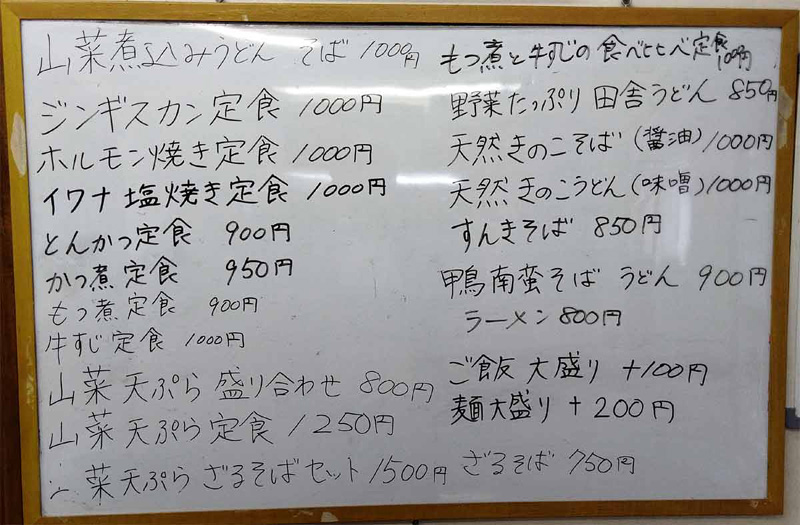 山菜煮込みうどん そば 1000円
ジンギスカン定食 1000円
ホルモン焼き定食 1000円
イワナ 塩焼き定食 1000円
とんかつ定食 900円
かつ煮定食 950円
もつ煮定食 900円
牛すじ定食 1000円
山菜天ぷら 盛り合わせ 800円
山菜天ぷら定食 1250円
山菜天ぷら ざるそばセット 1500円
もつ煮と牛すじの食べくらべ定食
野菜たっぷり 田舎うどん 850円
天然きのこそば(醤油)1000円
天然きのこうどん(味噌)1000円
すんきそば 850円
鴨南蛮そば うどん 900円
ラーメン 800円
ご飯 大盛り +100円
麺大盛り +200円
ざるそば 750円